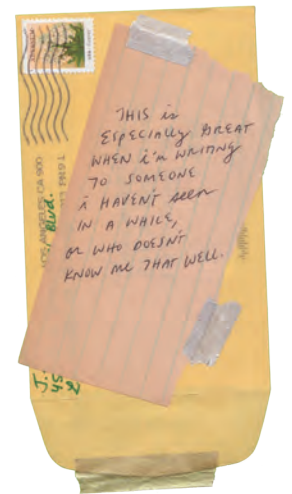 THIS is
ESPECIALLY GREAT
WHEN i'm WRITING
TO SOMEONE
i HAVEN'T seen
IN A WHILE,
or WHO DOESN'T
KNOW me THAT WELL.
LOS ANGELES CA 900
Blvd.